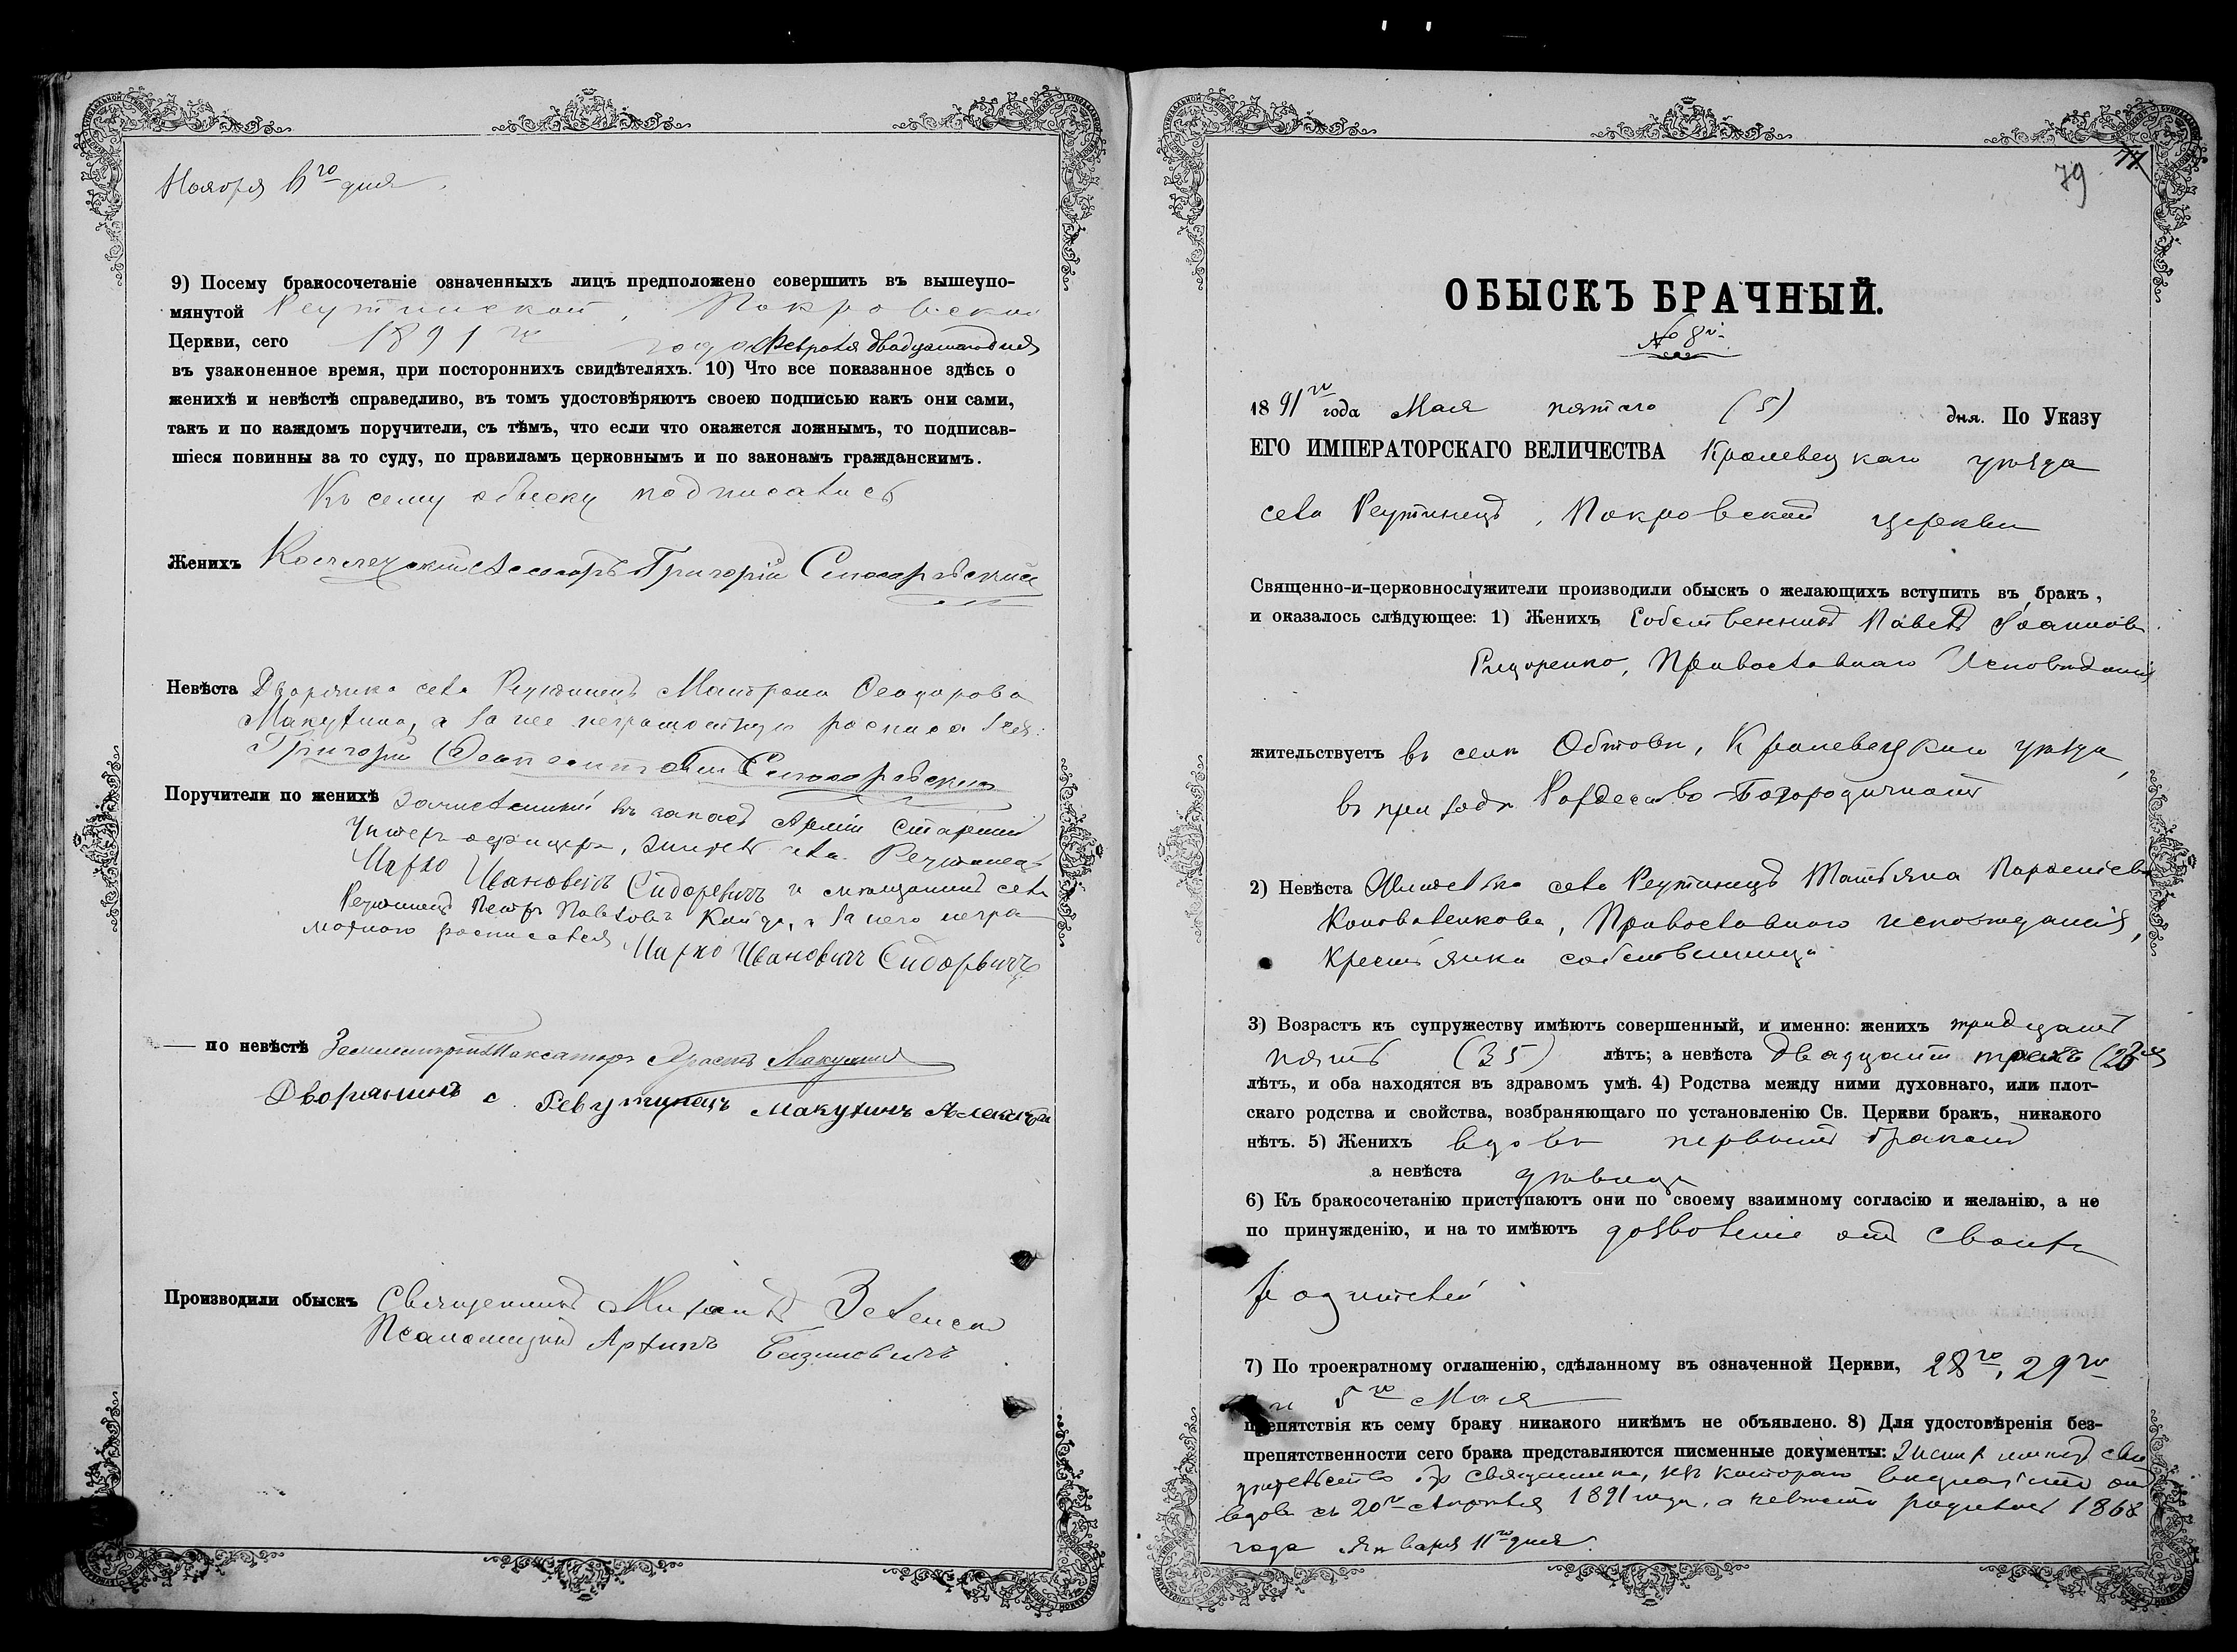 Ноября 6го дня.
9) Посему бракосочетаніе означенныхъ лицъ предположено совершить въ вышеупо-
мянутой Реутинской, Покровской
Церкви, сего 1891го года Февраля двадцатаго дня
въ узаконенное время, при постороннихъ свидѣтеляхъ. 10) Что все показанное здѣсь о
женихѣ и невѣстѣ справедливо, въ томъ удостовѣряютъ своею подписью какъ они сами,
такъ и по каждомъ поручители, съ тѣмъ, что если что окажется ложнымъ, то подписав-
шіеся повинны за то суду, по правиламъ церковнымъ и по законамъ гражданскимъ.
Къ сему обыску подписались
Женихъ Коллежскій Ассесоръ Григорій
Невѣста Дворянка села Реутинецъ Матрона Ѳеодорова
Макухина, а за нее неграмотную росписался
Григорій
Поручители по женихѣ Зачисленный въ запасъ Арміи Старшій
Унтеръ офицеръ, житель села Реутинецъ
Марко Ивановичъ Сидоревичъ и мѣщанинъ села
Реутинецъ Петръ Павловъ а за него негра-
мотного росписался Марко Ивановичъ Сидорвичъ
— по невѣстѣ Землемѣръ Таксаторъ Макухинъ
Дворянинъ с. Ревутинецъ Макухинъ Алексѣй
Производили обыскъ Священникъ Михаилъ Зеленскій
Псаломщикъ Архипъ Базилевичъ
79 77
ОБЫСКЪ БРАЧНЫЙ.
№ 8й
1891го года Мая пятаго (5) дня. По Указу
ЕГО ИМПЕРАТОРСКАГО ВЕЛИЧЕСТВА Кролевецкаго уѣзда
села Реутинецъ, Покровской церкви
Священно-и-церковнослужители производили обыскъ о желающихъ вступить въ бракъ,
и оказалось слѣдующее: 1) Женихъ Собственникъ Павелъ Іоанновъ
Православнаго Исповѣданія
жительствуетъ въ селѣ Обтовѣ, Кролевецкаго уѣзда,
въ приходѣ Рождество-Богородичномъ
2) Невѣста Жителька села Реутинецъ Татьяна
Коноваленкова, Православнаго исповѣданія,
Крестьянка собственница
3) Возрастъ къ супружеству имѣютъ совершенный, и именно: женихъ тридцать
пять (35) лѣтъ; а невѣста двадцать трехъ (23)
лѣтъ, и оба находятся въ здравомъ умѣ. 4) Родства между ними духовнаго, или плот-
скаго родства и свойства, возбраняющаго по установленію Св. Церкви бракъ, никакого
нѣтъ. 5) Женихъ вдовъ первымъ бракомъ
а невѣста дѣвица
6) Къ бракосочетанію приступаютъ они по своему взаимному согласію и желанію, а не
по принужденію, и на то имѣютъ дозволеніе отъ своихъ
родителей
7) По троекратному оглашенію, сдѣланному въ означенной Церкви, 28го, 29го
и 5го Мая
препятствія къ сему браку никакого никѣмъ не объявлено. 8) Для удостовѣренія без-
препятственности сего брака представляются писменные документы: сви
дѣтельство отъ священника, изъ котораго видно, что онъ
вдовъ съ 20го 1891 года, а невѣста родилась 1868
года Января 11го дня.